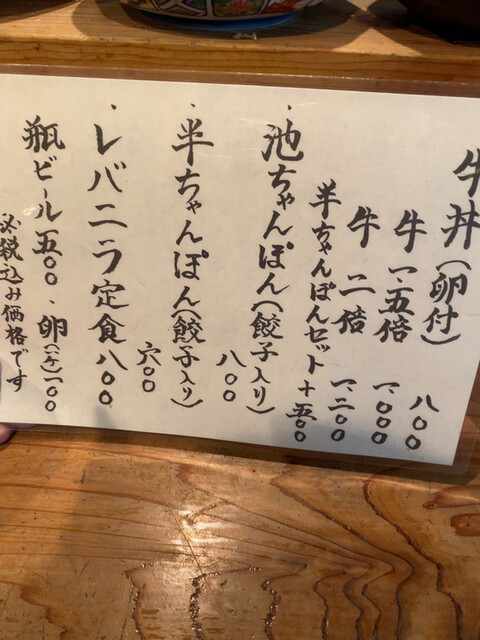 牛丼(卵付) 八〇〇
牛 一、五倍 一、〇〇〇
牛 二倍 一、二〇〇
半ちゃんぽんセット +五〇〇
・池ちゃんぽん(餃子入り) 八〇〇
・半ちゃんぽん(餃子入り) 六〇〇
・レバニラ定食 八〇〇
瓶ビール 五〇〇、卵(ケ)一〇〇
※税込み価格です